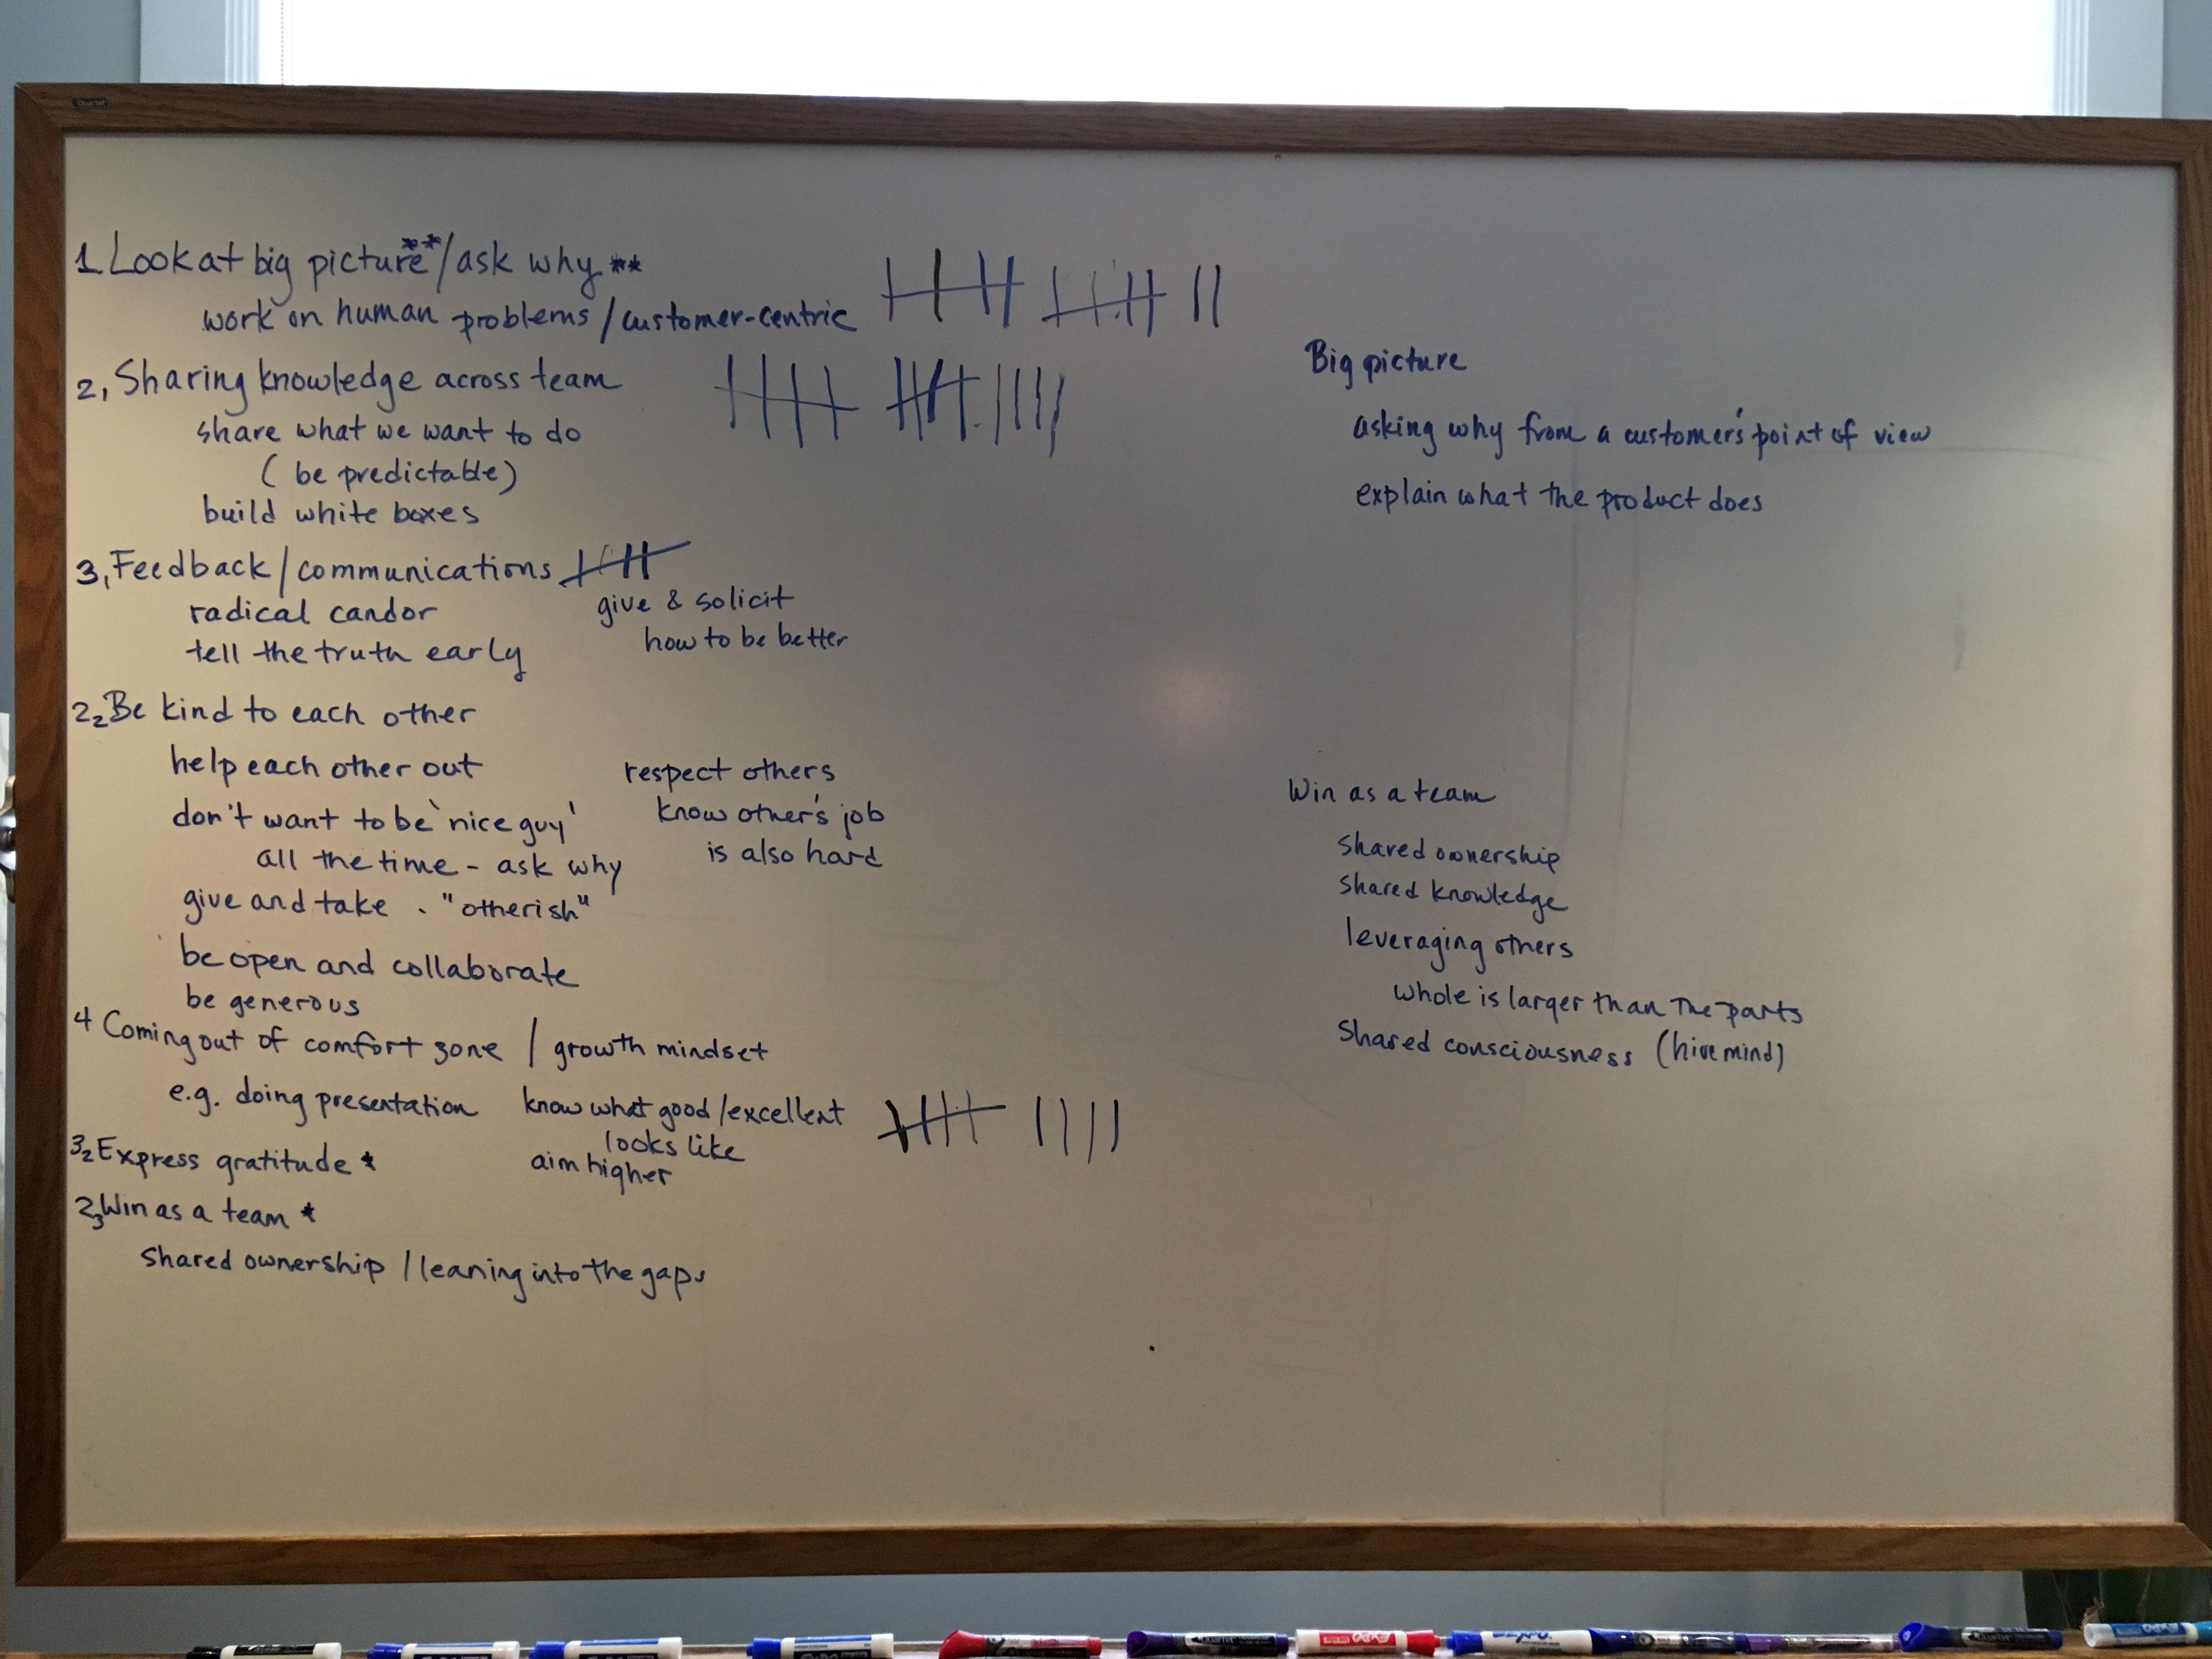 Quartet
1 Look at big picture**/ask why **
work on human problems / customer-centric
2, Sharing knowledge across team
share what we want to do
( be predictable)
build white boxes
3, Feedback/communications
radical candor
give & solicit
tell the truth early
how to be better
2₂ Be kind to each other
help each other out
respect others
don't want to be 'nice guy'
know other's job
all the time - ask why
is also hard
give and take . "otherish"
be open and collaborate
be generous
4 Coming out of comfort zone / growth mindset
e.g. doing presentation
know what good/excellent
looks like
3₂ Express gratitude *
aim higher
2₃ Win as a team *
Shared ownership / leaning into the gaps
Big picture
asking why from a customer's point of view
explain what the product does
Win as a team
Shared ownership
Shared knowledge
leveraging others
whole is larger than the parts
Shared consciousness (hive mind)
Quartet
EXPO
Quartet